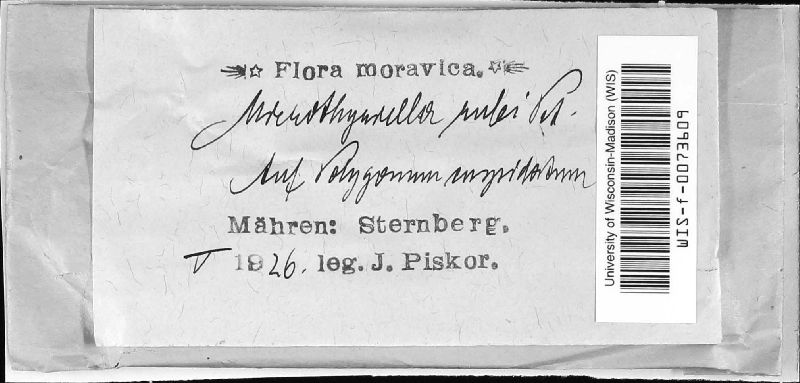 Flora moravica.
Microthyriella rubi Pet.
Auf Polygonum cuspidatum
Mähren: Sternberg.
V 1926. leg. J. Piskor.
University of Wisconsin-Madison (WIS)
WIS-f-0073609